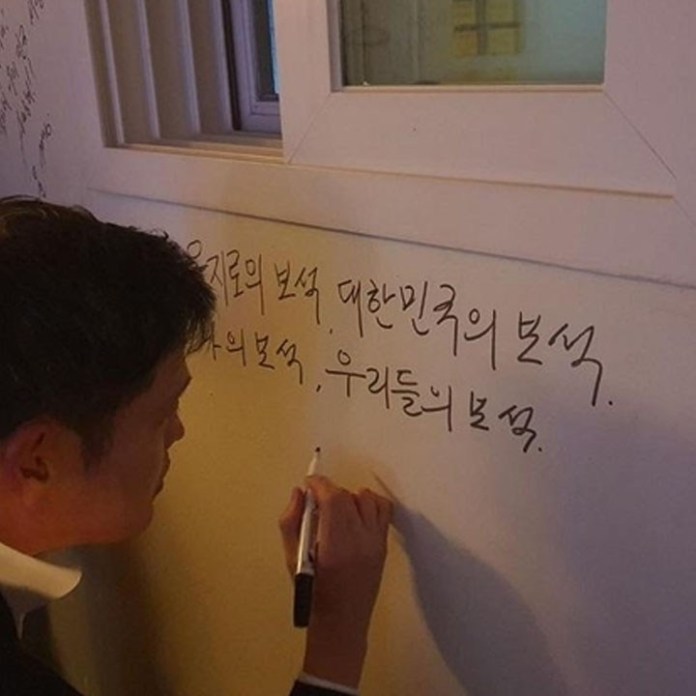 을지로의 보석, 대한민국의 보석.
나의 보석, 우리들의 보석.